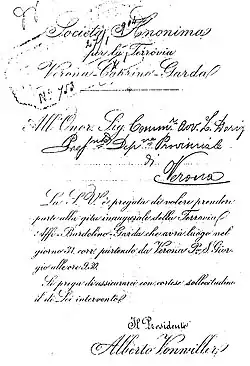 Società Anonima
per la Ferrovia
Verona-Caprino-Garda
N° 753
All'Onor. Sig. Comm.re Avv. L. Dorigo
Dep.ne Provinciale
di
Verona
La S. V. è pregata di volere prender
parte alla gita inaugurale della Ferrovia
Affi-Bardolino-Garda che avrà luogo nel
giorno 31. corr. partendo da Verona P.ta S. Gior-
gio alle ore 9.30.
Si prega di assicurarci con cortese sollecitudine
il di Lei intervento.
Il Presidente
Alberto Vonwiller